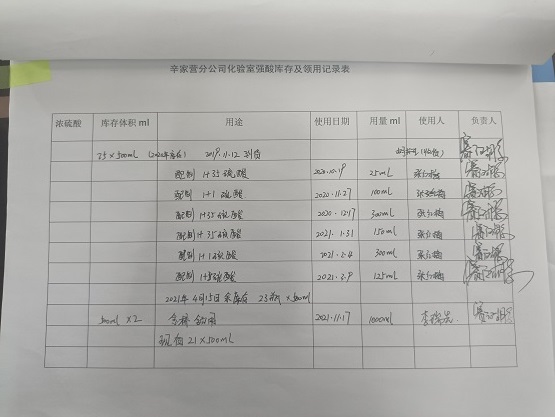 辛家营分公司化验室强酸库存及领用记录表
浓硫酸 库存体积 ml 用途 使用日期 用量 ml 使用人 负责人
25×500ml (2020年库存) 2019.11.12 到货
配制 1+35 硫酸 2020.10.19 25ml 张红梅
配制 1+1 硫酸 2020.11.27 100ml 张红梅
配制 1+35硫酸 2020.12.17 300ml 张红梅
配制 1+35硫酸 2021.1.31 150ml 张红梅
配制 1+1硫酸 2021.2.4 300ml 张红梅
配制 1+5硫酸 2021.2.9 125ml 张红梅
2021年4月15日 余库存 23瓶×500ml
500ml×2 领用 2021.11.17 1000ml
现有21×500ml